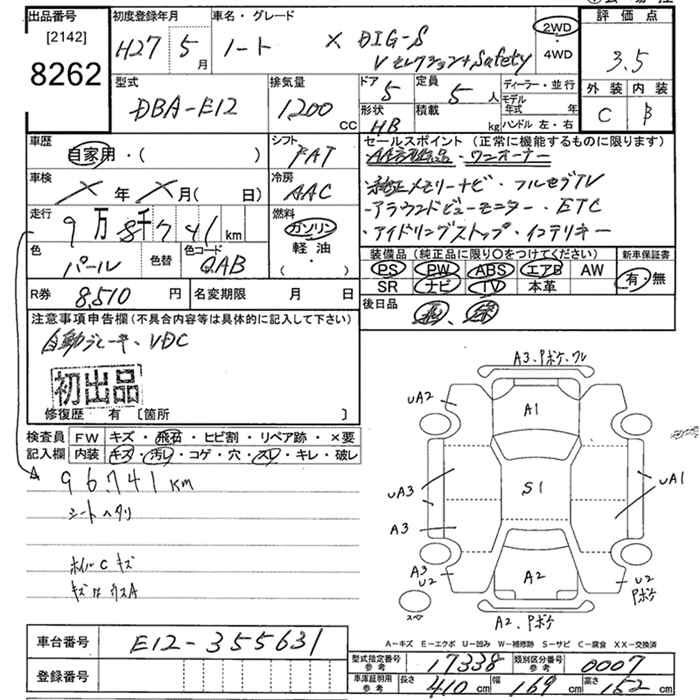 出品番号
[2142]
8262
初度登録年月
H27 5 月
車名・グレード
ノート X DIG-S
Vセレクション+Safety
2WD
4WD
評価点
3.5
外装 内装
C B
型式
DBA-E12
排気量
1200 cc
ドア 5
形状 HB
定員 5 人
積載 kg
ディーラー・並行
モデル年式 年
ハンドル 左・右
車歴
自家用・( )
シフト
FAT
車検
年 月( 日)
冷房
AAC
走行
9万8千741km
燃料
ガソリン
軽油
( ・ )
色
パール
色替
色コード
QAB
R券 8,510 円
名変期限 月 日
セールスポイント (正常に機能するものに限ります)
ワンオーナー
・純正メモリーナビ・フルセグTV
・アラウンドビューモニター・ETC
・アイドリングストップ・インテリキー
装備品 (純正品に限り〇をつけてください)
新車保証書
PS PW ABS エアB AW
SR ナビ TV 本革
有・無
後日品
注意事項申告欄 (不具合内容等は具体的に記入して下さい)
自動ブレーキ、VDC
初出品
修復歴 有 [箇所 ]
検査員記入欄
FW キズ・飛石・ヒビ割・リペア跡・×要
内装 キズ・汚レ・コゲ・穴・スレ・キレ・破レ
96.741KM
シートヘタリ
ホイルCキズ
A3.Pボケ.ワレ
UA2
A1
UA3
S1
UA1
A3
A3
U2
A2
U2
Pボケ
スペ
A2.Pボケ
A-キズ E-エクボ U-凹み W-補修跡 S-サビ C-腐食 XX-交換済
車台番号
E12-355631
登録番号
型式指定番号 参考 17338
類別区分番号 参考 0007
車庫証明用 参考 長さ 410 cm 幅 169 cm 高さ 152 cm